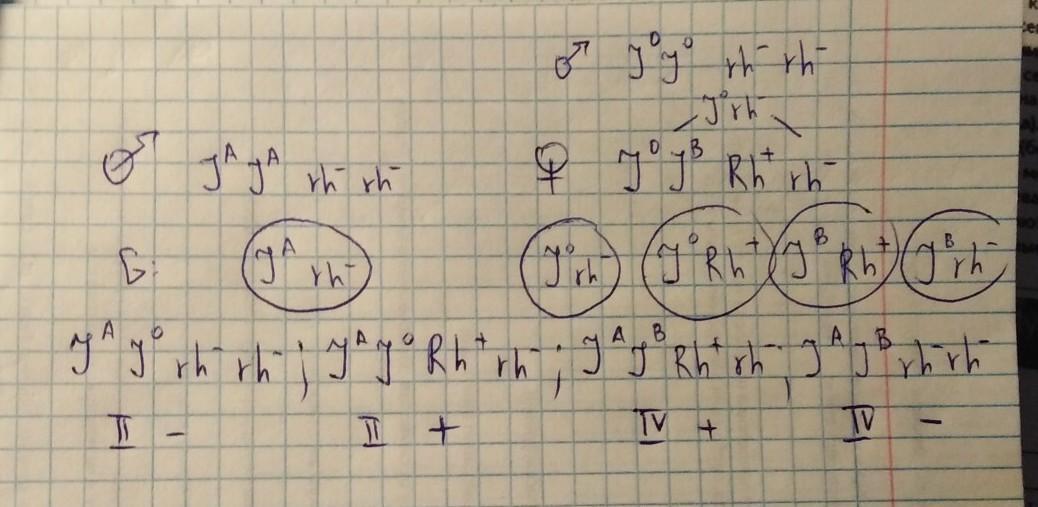 ♂ J⁰J⁰ rh⁻ rh⁻
J⁰rh⁻
♂ JᴬJᴬ rh⁻ rh⁻ ♀ J⁰Jᴮ Rh⁺ rh⁻
G: Jᴬ rh⁻ J⁰rh⁻ J⁰Rh⁺ JᴮRh⁺ Jᴮrh⁻
JᴬJ⁰ rh⁻ rh⁻; JᴬJ⁰ Rh⁺ rh⁻; JᴬJᴮ Rh⁺ rh⁻; JᴬJᴮ rh⁻rh⁻
II − II + IV + IV −